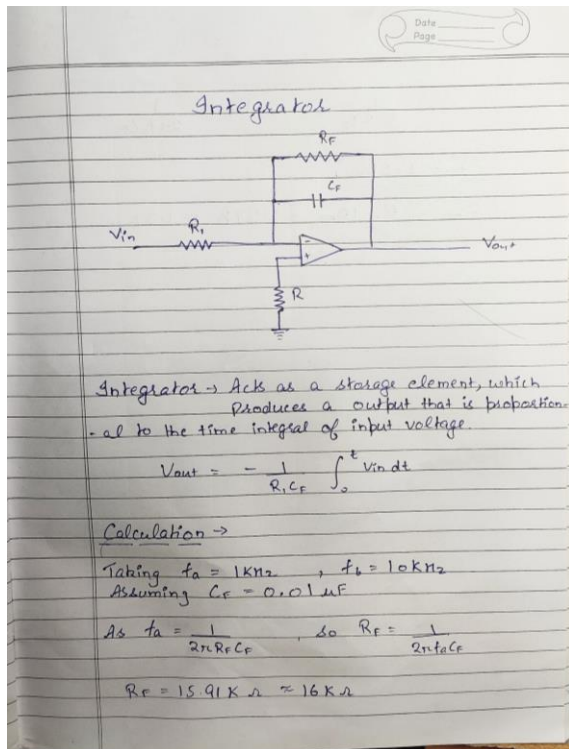 Date
Page
Integrator
RF
CF
Vin
R1
-
+
Vout
R
Integrator → Acts as a storage element, which
produces a output that is proportion-
-al to the time integral of input voltage.
Vout = - 1/(R1CF) ∫₀ᵗ Vin dt
Calculation →
Taking fa = 1KHz , fb = 10KHz
Assuming CF = 0.01 µF
As fa = 1/(2πRFCF) , so RF = 1/(2πfaCF)
RF = 15.91 K Ω ≈ 16 K Ω